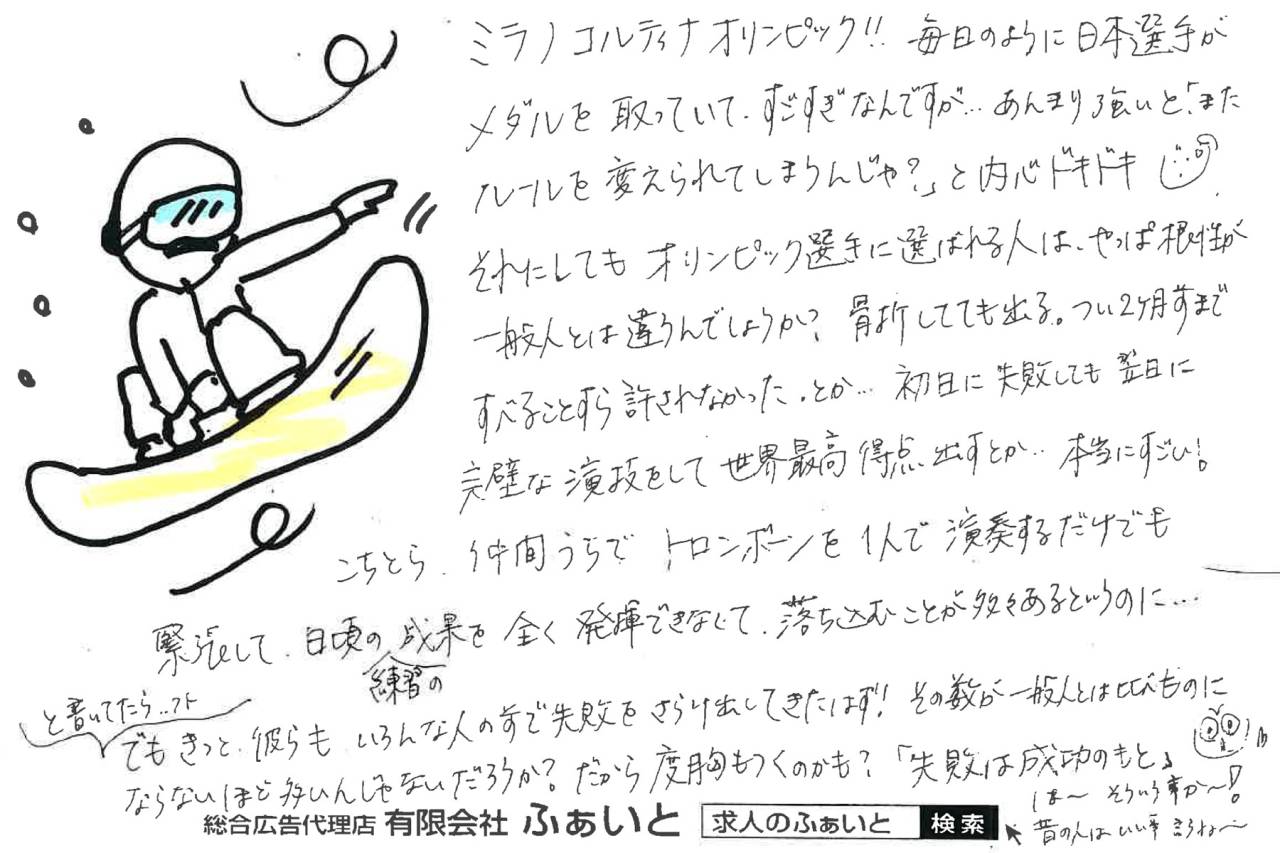 ミラノコルティナオリンピック!! 毎日のように日本選手が
メダルを取っていて、すごすぎなんですが… あんまり強いと「また
ルールを変えられてしまうんじゃ?」と内心ドキドキ
それにしてもオリンピック選手に選ばれる人は、やっぱ根性が
一般人とは違うんでしょうか? 骨折してても出る。つい2ヶ月前まで
すべることすら許されなかった。とか… 初日に失敗しても翌日に
完璧な演技をして世界最高得点出すとか… 本当にすごい!
こちとら、仲間うちでトロンボーンを1人で演奏するだけでも
緊張して、日頃の練習の成果を全く発揮できなくて、落ち込むことが多々あるというのに…
と書いてたら..フト
でもきっと、彼らもいろんな人の前で失敗をさらけ出してきたはず! その数が一般人とは比べものに
ならないほど多いんじゃないだろうか? だから度胸もつくのかも? 「失敗は成功のもと」
は〜 そういう事か〜!
昔の人はいい事言うね〜
総合広告代理店 有限会社 ふぁいと 求人のふぁいと 検索